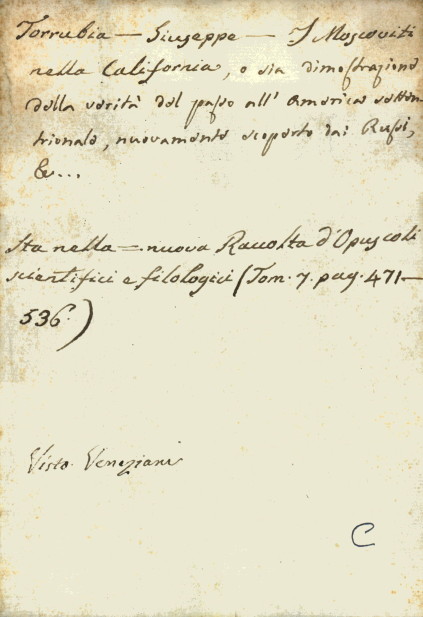 Torrubia — Giuseppe — I Moscoviti
nella California, o sia dimostrazione
della verità del passo all' America setten-
trionale, nuovamente scoperto dai Russi,
&...
Sta nella = nuova Raccolta d'Opuscoli
scientifici e filologici (Tom. 7. pag. 471—
536.)
Visto Veneziani
C